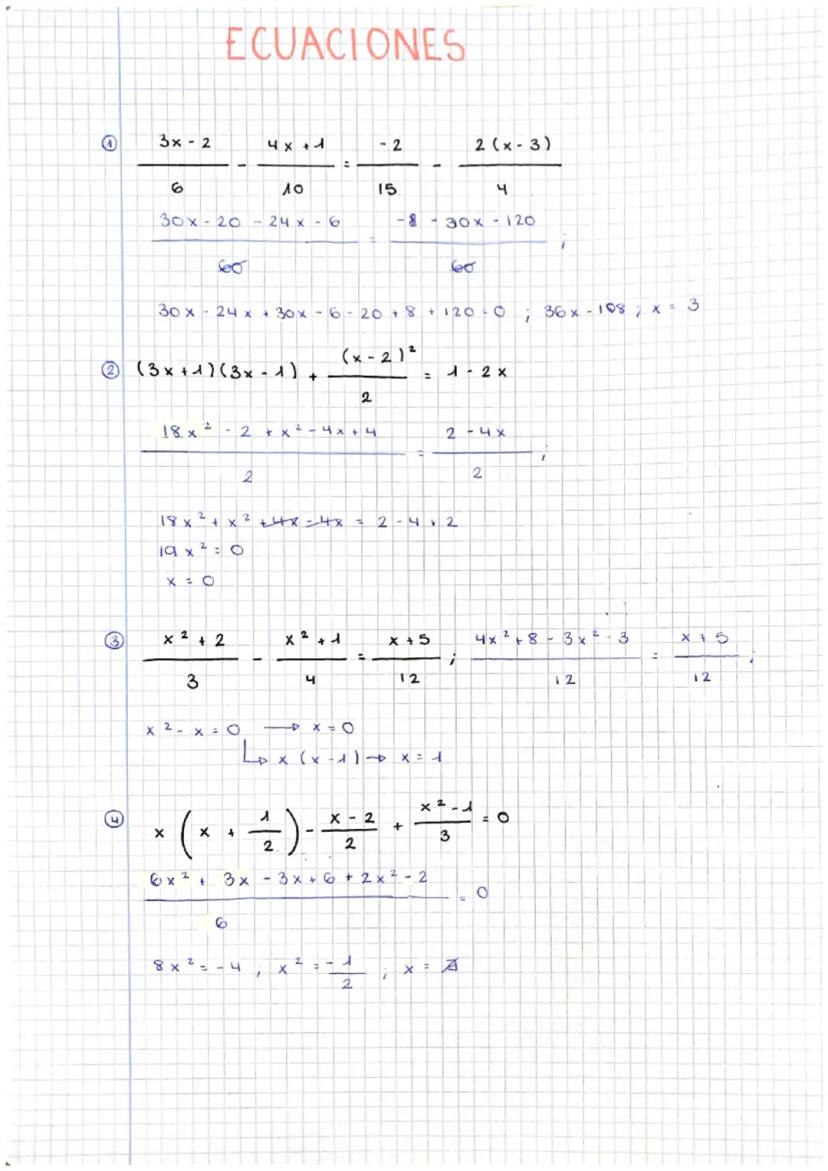 ECUACIONES
① (3x - 2)/6 - (4x + 1)/10 = -2/15 - 2(x - 3)/4
(30x - 20 - 24x - 6)/60 = (-8 - 30x - 120)/60 ;
30x - 24x + 30x - 6 - 20 + 8 + 120 = 0 ; 36x - 108 ; x = 3
② (3x + 1)(3x - 1) + (x - 2)²/2 = 1 - 2x
(18x² - 2 + x² - 4x + 4)/2 = (2 - 4x)/2 ;
18x² + x² + 4x - 4x = 2 - 4 + 2
19x² = 0
x = 0
③ (x² + 2)/3 - (x² + 1)/4 = (x + 5)/12 ; (4x² + 8 - 3x² - 3)/12 = (x + 5)/12 ;
x² - x = 0 → x = 0
↳ x (x - 1) → x = 1
④ x (x + 1/2) - (x - 2)/2 + (x² - 1)/3 = 0
(6x² + 3x - 3x + 6 + 2x² - 2)/6 = 0
8x² = -4 , x² = -1/2 ; x = ∄